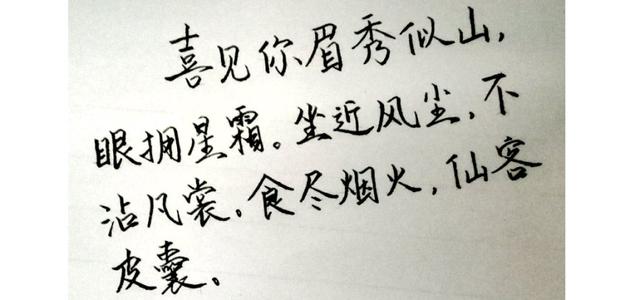 喜见你眉秀似山,
眼拥星霜。坐近风尘,不
沾凡裳。食尽烟火,仙客
皮囊。